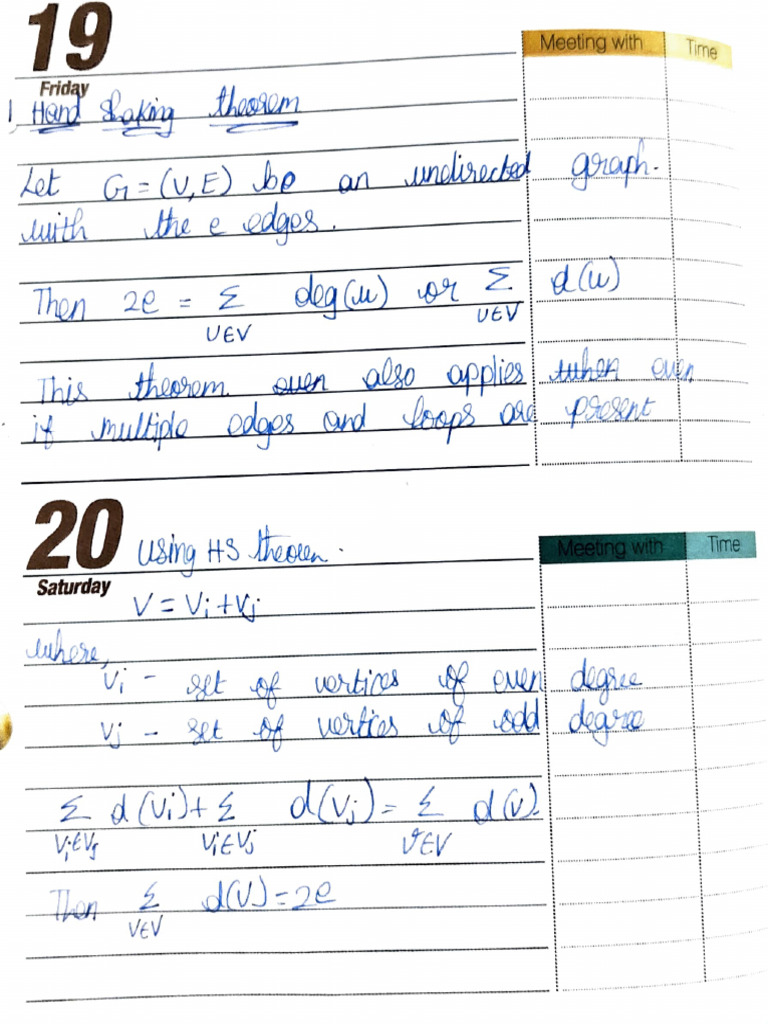 19
Friday
Meeting with Time
1, Hand shaking theorem
Let G = (V, E) be an undirected graph.
with the e edges.
Then 2e = Σ deg(u) or Σ d(u)
U∈V U∈V
This theorem even also applies when even
if multiple edges and loops are present
20
Saturday
Meeting with Time
Using HS theorem.
V = Vi + Vj
where,
Vi - set of vertices of even degree
Vj - set of vertices of odd degree
Σ d(Vi) + Σ d(Vj) = Σ d(v).
Vi∈Vj V∈V
Then Σ d(V) = 2e
V∈V